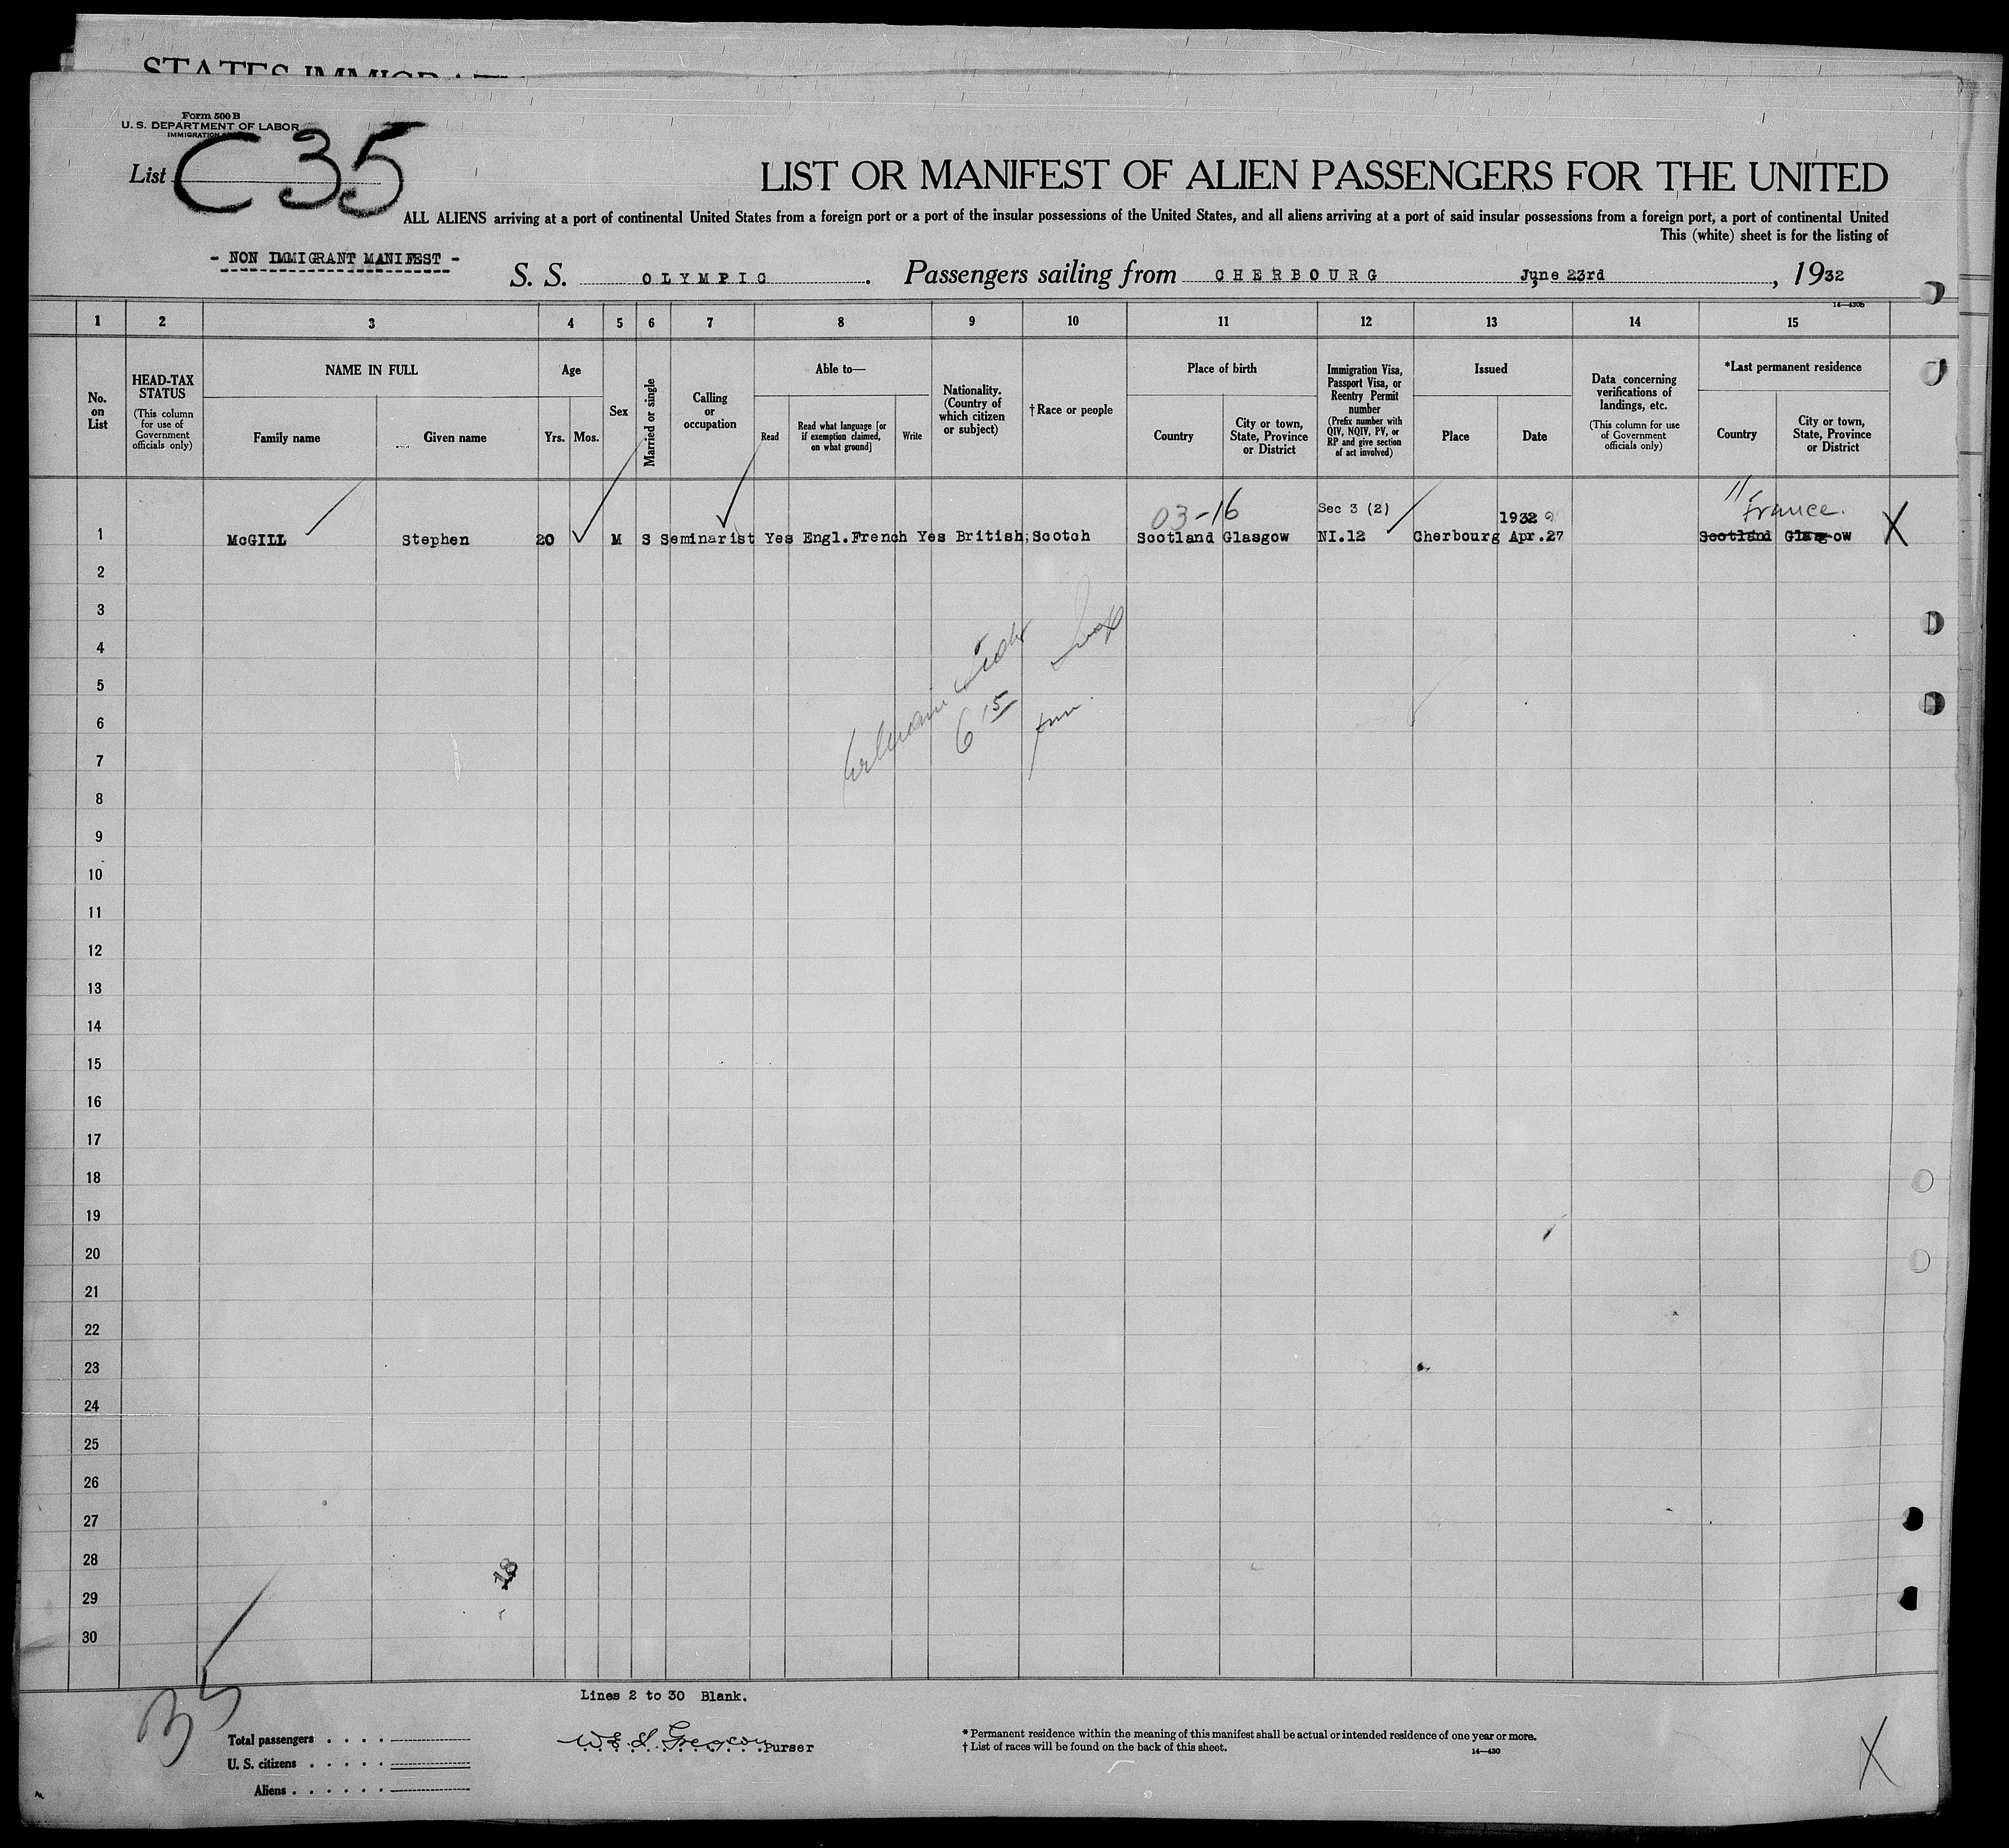 STATES IMMIGRAT
Form 500 B
U. S. DEPARTMENT OF LABOR
IMMIGRATION
List C35
LIST OR MANIFEST OF ALIEN PASSENGERS FOR THE UNITED
ALL ALIENS arriving at a port of continental United States from a foreign port or a port of the insular possessions of the United States, and all aliens arriving at a port of said insular possessions from a foreign port, a port of continental United
This (white) sheet is for the listing of
- NON IMMIGRANT MANIFEST -
S. S. OLYMPIC. Passengers sailing from CHERBOURG, June 23rd, 1932
14—430b
1 2 3 4 5 6 7 8 9 10 11 12 13 14 15
No. on List
HEAD-TAX STATUS
(This column for use of Government officials only)
NAME IN FULL
Family name
Given name
Age
Yrs.
Mos.
Sex
Married or single
Calling or occupation
Able to—
Read
Read what language [or if exemption claimed, on what ground]
Write
Nationality. (Country of which citizen or subject)
† Race or people
Place of birth
Country
City or town, State, Province or District
Immigration Visa, Passport Visa, or Reentry Permit number
(Prefix number with QIV, NQIV, PV, or RP and give section of act involved)
Issued
Place
Date
Data concerning verifications of landings, etc.
(This column for use of Government officials only)
*Last permanent residence
Country
City or town, State, Province or District
03-16 Sec 3 (2) 1932 " France.
1 McGILL Stephen 20 M S Seminarist Yes Engl.French Yes British Scotch Scotland Glasgow NI.12 Cherbourg Apr.27 Scotland Glasgow X
2
3
4
5
6 6 15 pm
7
8
9
10
11
12
13
14
15
16
17
18
19
20
21
22
23
24
25
26
27
28
29
30
35
Lines 2 to 30 Blank.
Total passengers . . . .
U. S. citizens . . . . .
Aliens . . . . . .
Purser
* Permanent residence within the meaning of this manifest shall be actual or intended residence of one year or more.
† List of races will be found on the back of this sheet.
14—430
X